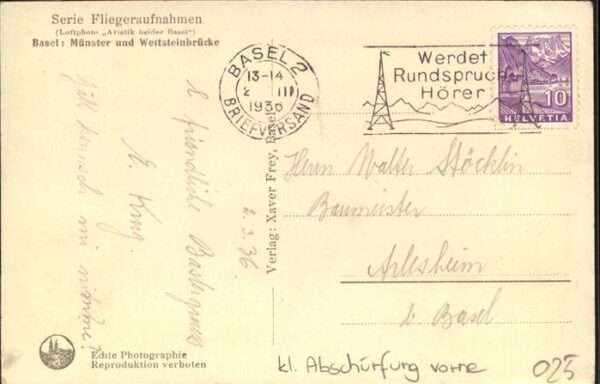 Serie Fliegeraufnahmen
(Luftphoto „Aviatik beider Basel")
Basel: Münster und Wettsteinbrücke
BASEL 2
13-14
2 III
1936
BRIEFVERSAND
Werdet
Rundspruch
Hörer
10
HELVETIA
Herrn Walter Stöcklin
Baumeister
Arlesheim
b Basel
2.3.36
E friendliche
E. Krug.
mi
Verlag: Xaver Frey, Basel
Echte Photographie
Reproduktion verboten
kl. Abschürfung vorne
025